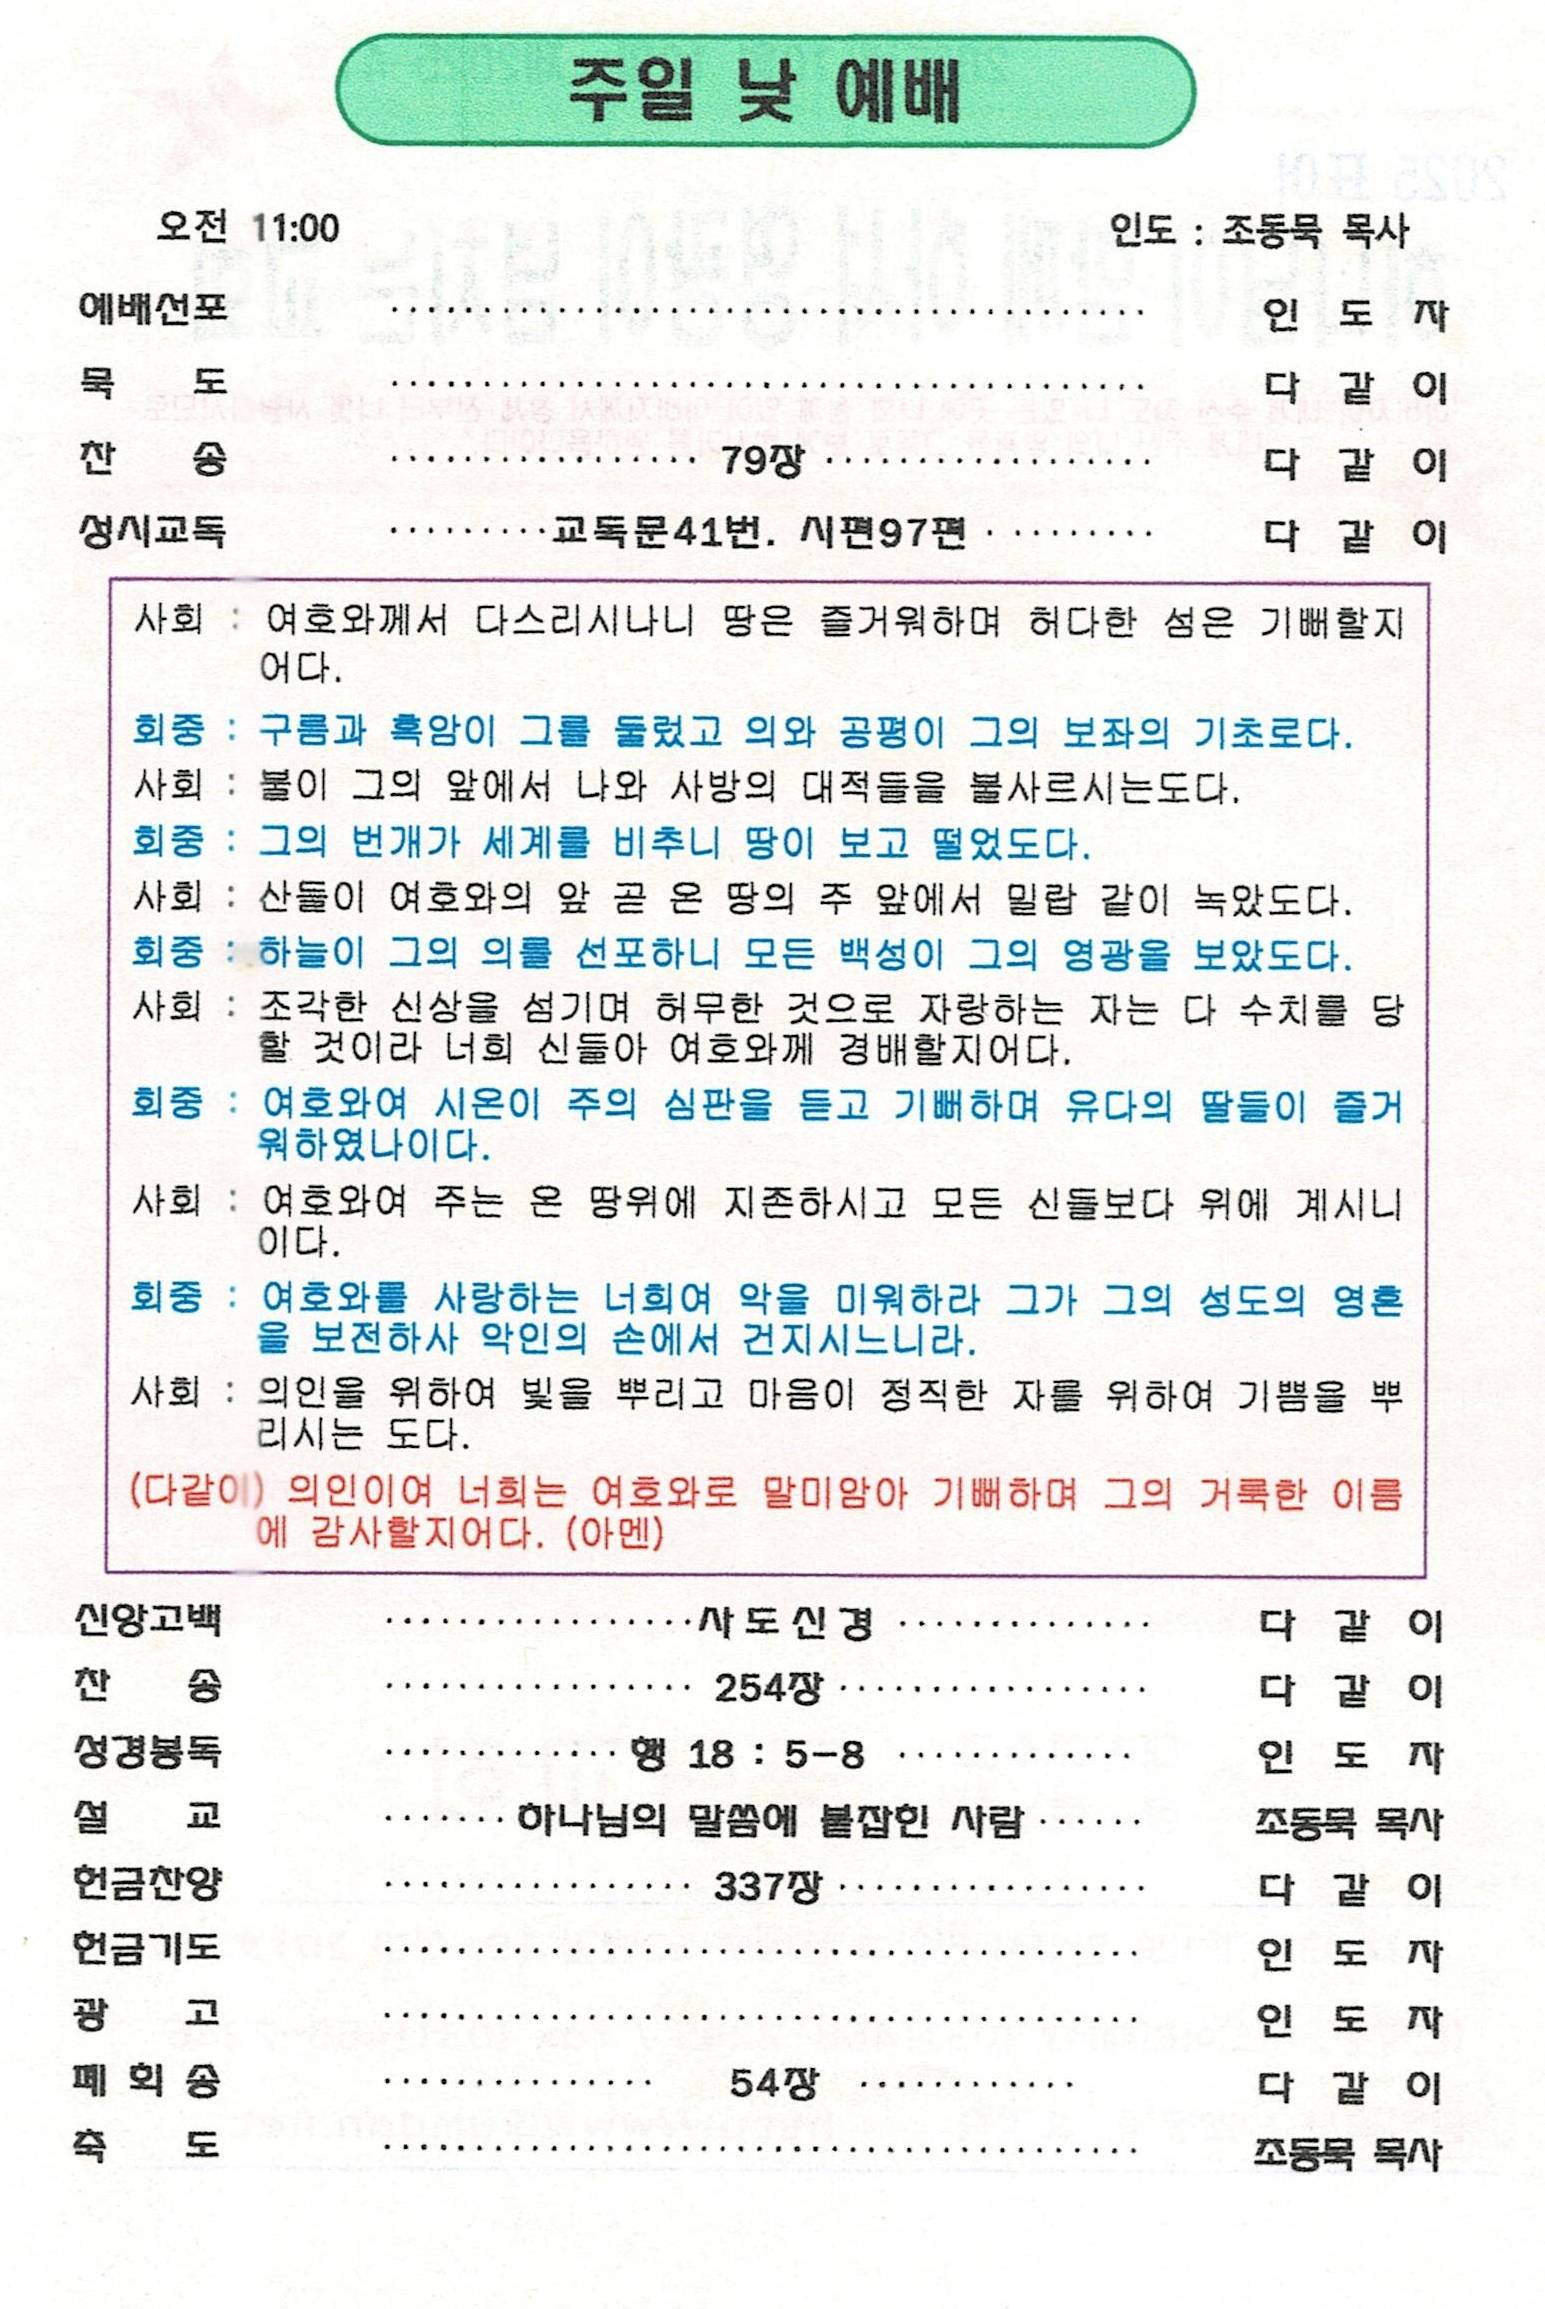 주일 낮 예배
오전 11:00 인도 : 조동묵 목사
예배선포 ........................................ 인 도 자
묵 도 ........................................ 다 같 이
찬 송 ................. 79장 .................. 다 같 이
성시교독 .........교독문41번. 시편97편 .......... 다 같 이
사회 : 여호와께서 다스리시나니 땅은 즐거워하며 허다한 섬은 기뻐할지
어다.
회중 : 구름과 흑암이 그를 둘렀고 의와 공평이 그의 보좌의 기초로다.
사회 : 불이 그의 앞에서 나와 사방의 대적들을 불사르시는도다.
회중 : 그의 번개가 세계를 비추니 땅이 보고 떨었도다.
사회 : 산들이 여호와의 앞 곧 온 땅의 주 앞에서 밀랍 같이 녹았도다.
회중 : 하늘이 그의 의를 선포하니 모든 백성이 그의 영광을 보았도다.
사회 : 조각한 신상을 섬기며 허무한 것으로 자랑하는 자는 다 수치를 당
할 것이라 너희 신들아 여호와께 경배할지어다.
회중 : 여호와여 시온이 주의 심판을 듣고 기뻐하며 유다의 딸들이 즐거
워하였나이다.
사회 : 여호와여 주는 온 땅위에 지존하시고 모든 신들보다 위에 계시니
이다.
회중 : 여호와를 사랑하는 너희여 악을 미워하라 그가 그의 성도의 영혼
을 보전하사 악인의 손에서 건지시느니라.
사회 : 의인을 위하여 빛을 뿌리고 마음이 정직한 자를 위하여 기쁨을 뿌
리시는 도다.
(다같이) 의인이여 너희는 여호와로 말미암아 기뻐하며 그의 거룩한 이름
에 감사할지어다. (아멘)
신앙고백 .................사도신경 .............. 다 같 이
찬 송 ................. 254장 ................. 다 같 이
성경봉독 ............. 행 18 : 5-8 ............. 인 도 자
설 교 ....... 하나님의 말씀에 붙잡힌 사람 ...... 조동묵 목사
헌금찬양 ................. 337장 ................. 다 같 이
헌금기도 ........................................ 인 도 자
광 고 ........................................ 인 도 자
폐 회 송 ............... 54장 ............ 다 같 이
축 도 ........................................ 조동묵 목사